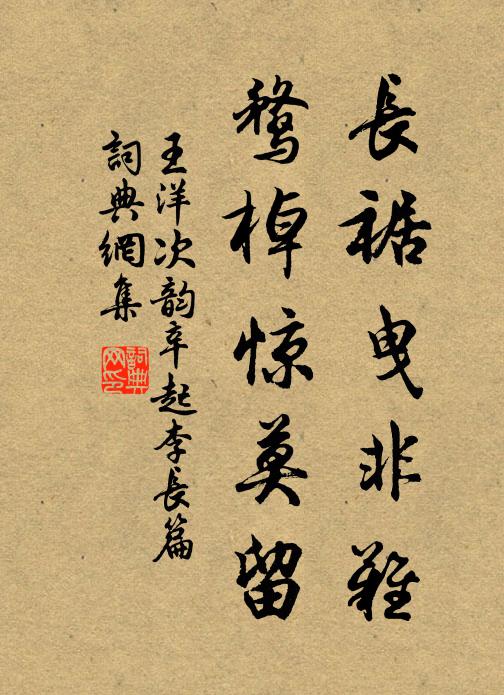 長裾曳非難
鶩棹惊莫留
王洋次韵辛起李長篇
詞典網集
詞典网印